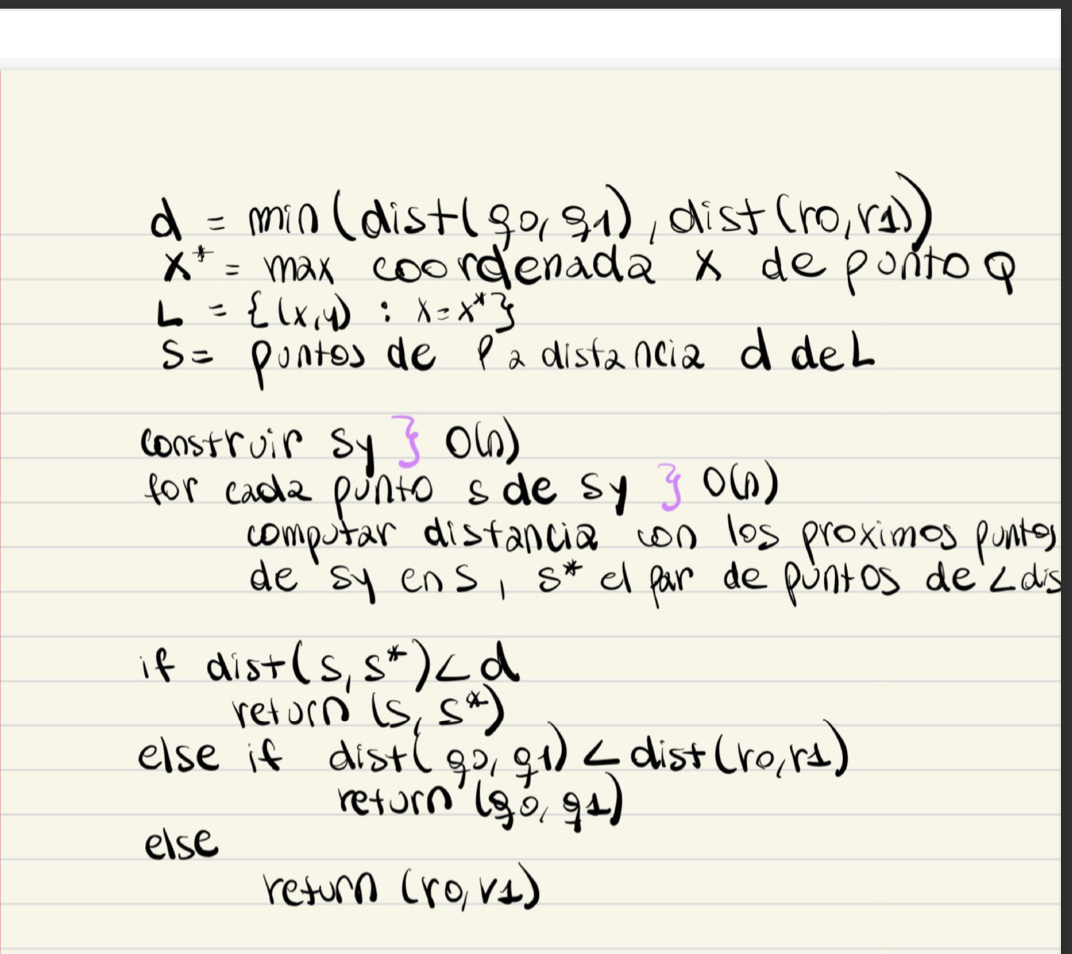 d = min(dist(q0, q1), dist(r0, r1))
x* = max coordenada x de punto Q
L = {(x,y) : x=x*}
S= puntos de P a distancia d de L
construir Sy } O(n)
for cada punto s de Sy } O(n)
computar distancia con los proximos puntos
de Sy en S, s* el par de puntos de < dis
if dist(s, s*) < d
return (s, s*)
else if dist(q0, q1) < dist(r0, r1)
return (q0, q1)
else
return (r0, r1)